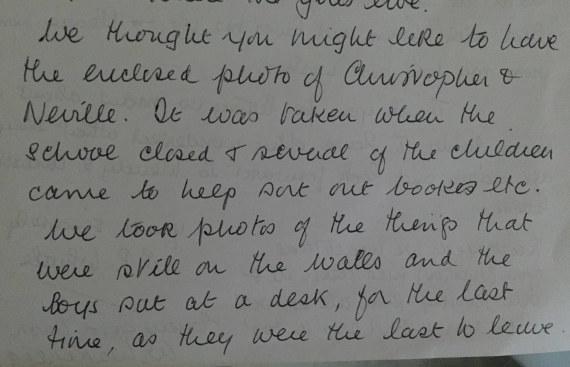 We thought you might like to have
the enclosed photo of Christopher &
Neville. It was taken when the
school closed & several of the children
came to help sort out bookes etc.
We took photos of the things that
were still on the walls and the
boys sat at a desk, for the last
time, as they were the last to leave.